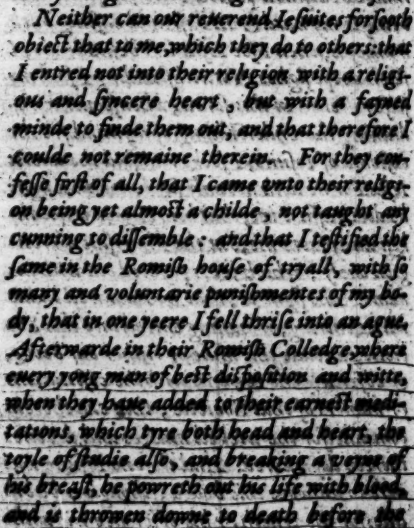 Neither can our reuerend Iesuites forsooth
obiect that to me, which they do to others: that
I entred not into their religion with a religi-
ous and syncere heart, but with a fayned
minde to finde them out, and that therefore I
coulde not remaine therein. For they con-
fesse first of all, that I came vnto their religi-
on being yet almost a childe, not taught any
cunning to dissemble: and that I testified the
same in the Romish house of tryall, with so
many and voluntarie punishmentes of my bo-
dy, that in one yeere I fell thrise into an ague.
Afterwarde in their Romish Colledge, where
euery yong man of best disposition and witte,
when they haue added to their earnest medi-
tations, which tyre both head and heart, the
toyle of studie also, and breaking a veyne of
his breast, he powreth out his life with blood,
and is throwen downe to death before the